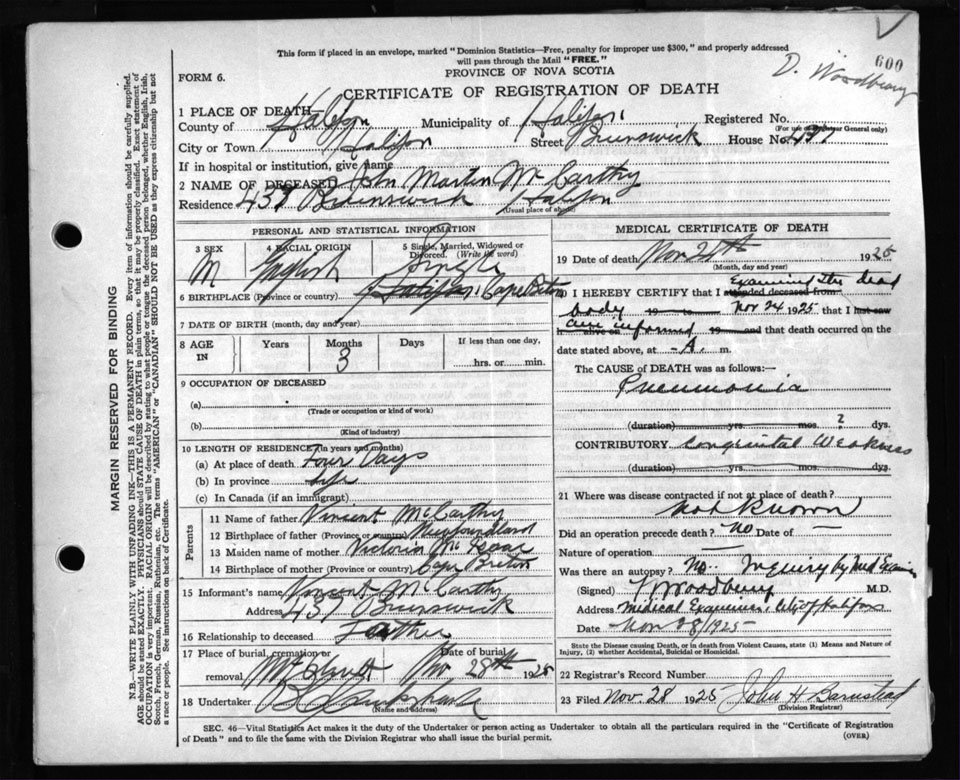 This form if placed in an envelope, marked "Dominion Statistics—Free, penalty for improper use $300," and properly addressed
will pass through the Mail "FREE."
600
D. Woodbury
FORM 6.
PROVINCE OF NOVA SCOTIA
CERTIFICATE OF REGISTRATION OF DEATH
1 PLACE OF DEATH—
County of Halifax Municipality of Halifax Registered No.
(For use of Registrar General only)
City or Town Halifax Street Brunswick House No. 437
If in hospital or institution, give name
2 NAME OF DECEASED John Martin McCarthy
Residence 437 Brunswick Halifax
(Usual place of abode)
PERSONAL AND STATISTICAL INFORMATION
3 SEX 4 RACIAL ORIGIN 5 Single, Married, Widowed or Divorced. (Write the word)
M English Single
6 BIRTHPLACE (Province or country) Cape Breton
7 DATE OF BIRTH (month, day and year)
8 AGE IN Years Months Days If less than one day,
3
hrs. or min.
9 OCCUPATION OF DECEASED
(a)
(Trade or occupation or kind of work)
(b)
(Kind of industry)
10 LENGTH OF RESIDENCE (in years and months)
(a) At place of death Four Days
(b) In province Life
(c) In Canada (if an immigrant)
Parents
11 Name of father Vincent McCarthy
12 Birthplace of father (Province or country) Newfoundland
13 Maiden name of mother Victoria Mc Isaac
14 Birthplace of mother (Province or country) Cape Breton
15 Informant's name Vincent McCarthy
Address 437 Brunswick
16 Relationship to deceased Father
17 Place of burial, cremation or removal Date of burial
Mt Olivet Nov 28th 1925
18 Undertaker
(Name and address)
MEDICAL CERTIFICATE OF DEATH
19 Date of death Nov 24th 1925
(Month, day and year)
Examining the dead
20 I HEREBY CERTIFY that I attended deceased from
body 19 to Nov 24 1925 that I last saw
h alive on am informed 19 and that death occurred on
date stated above, at -A. m.
The CAUSE of DEATH was as follows:—
Pneumonia
(duration) yrs. mos. 2 dys.
CONTRIBUTORY Congenital Weakness
(duration) yrs. mos. dys.
21 Where was disease contracted if not at place of death?
Not Known
Did an operation precede death? No Date of —
Nature of operation —
Was there an autopsy? No.. Inquiry by Med Examiner
(Signed) Woodbury M.D.
Address Medical Examiner, City of Halifax
Date Nov 28/1925
State the Disease causing Death, or in death from Violent Causes, state (1) Means and Nature of Injury, (2) whether Accidental, Suicidal or Homicidal.
22 Registrar's Record Number
23 Filed Nov. 28 1925 John H Barnstead
(Division Registrar)
SEC. 46—Vital Statistics Act makes it the duty of the Undertaker or person acting as Undertaker to obtain all the particulars required in the "Certificate of Registration
of Death" and to file the same with the Division Registrar who shall issue the burial permit.
(OVER)
MARGIN RESERVED FOR BINDING
N.B.—WRITE PLAINLY WITH UNFADING INK—THIS IS A PERMANENT RECORD. Every item of information should be carefully supplied.
AGE should be stated EXACTLY. PHYSICIANS should STATE CAUSE OF DEATH in plain terms, so that it may be properly classified. Exact statement of
OCCUPATION is very important. RACIAL ORIGIN will be described by stating to what people or tongue the deceased person belonged, whether English, Irish,
Scotch, French, German, Russian, Ruthenian, etc. The terms "AMERICAN" or "CANADIAN" SHOULD NOT BE USED as they express citizenship but not
a race or people. See instructions on back of Certificate.